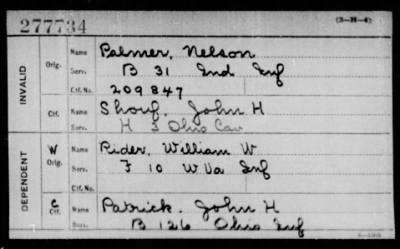 277734 (3-H-4)
INVALID
Orig. Name Palmer, Nelson
Serv. B 31 Ind Inf
Ctf. No. 209847
Ctf. Name Shouf, John H
Serv. H 3 Ohio Cav
DEPENDENT
W Orig. Name Rider, William W
Serv. F 10 W Va Inf
Ctf. No.
C Ctf. Name Patrick, John H
B 126 Ohio Inf